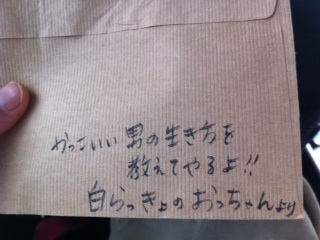 かっこいい男の生き方を
教えてやるよ!!
白らっきょのおっちゃんより